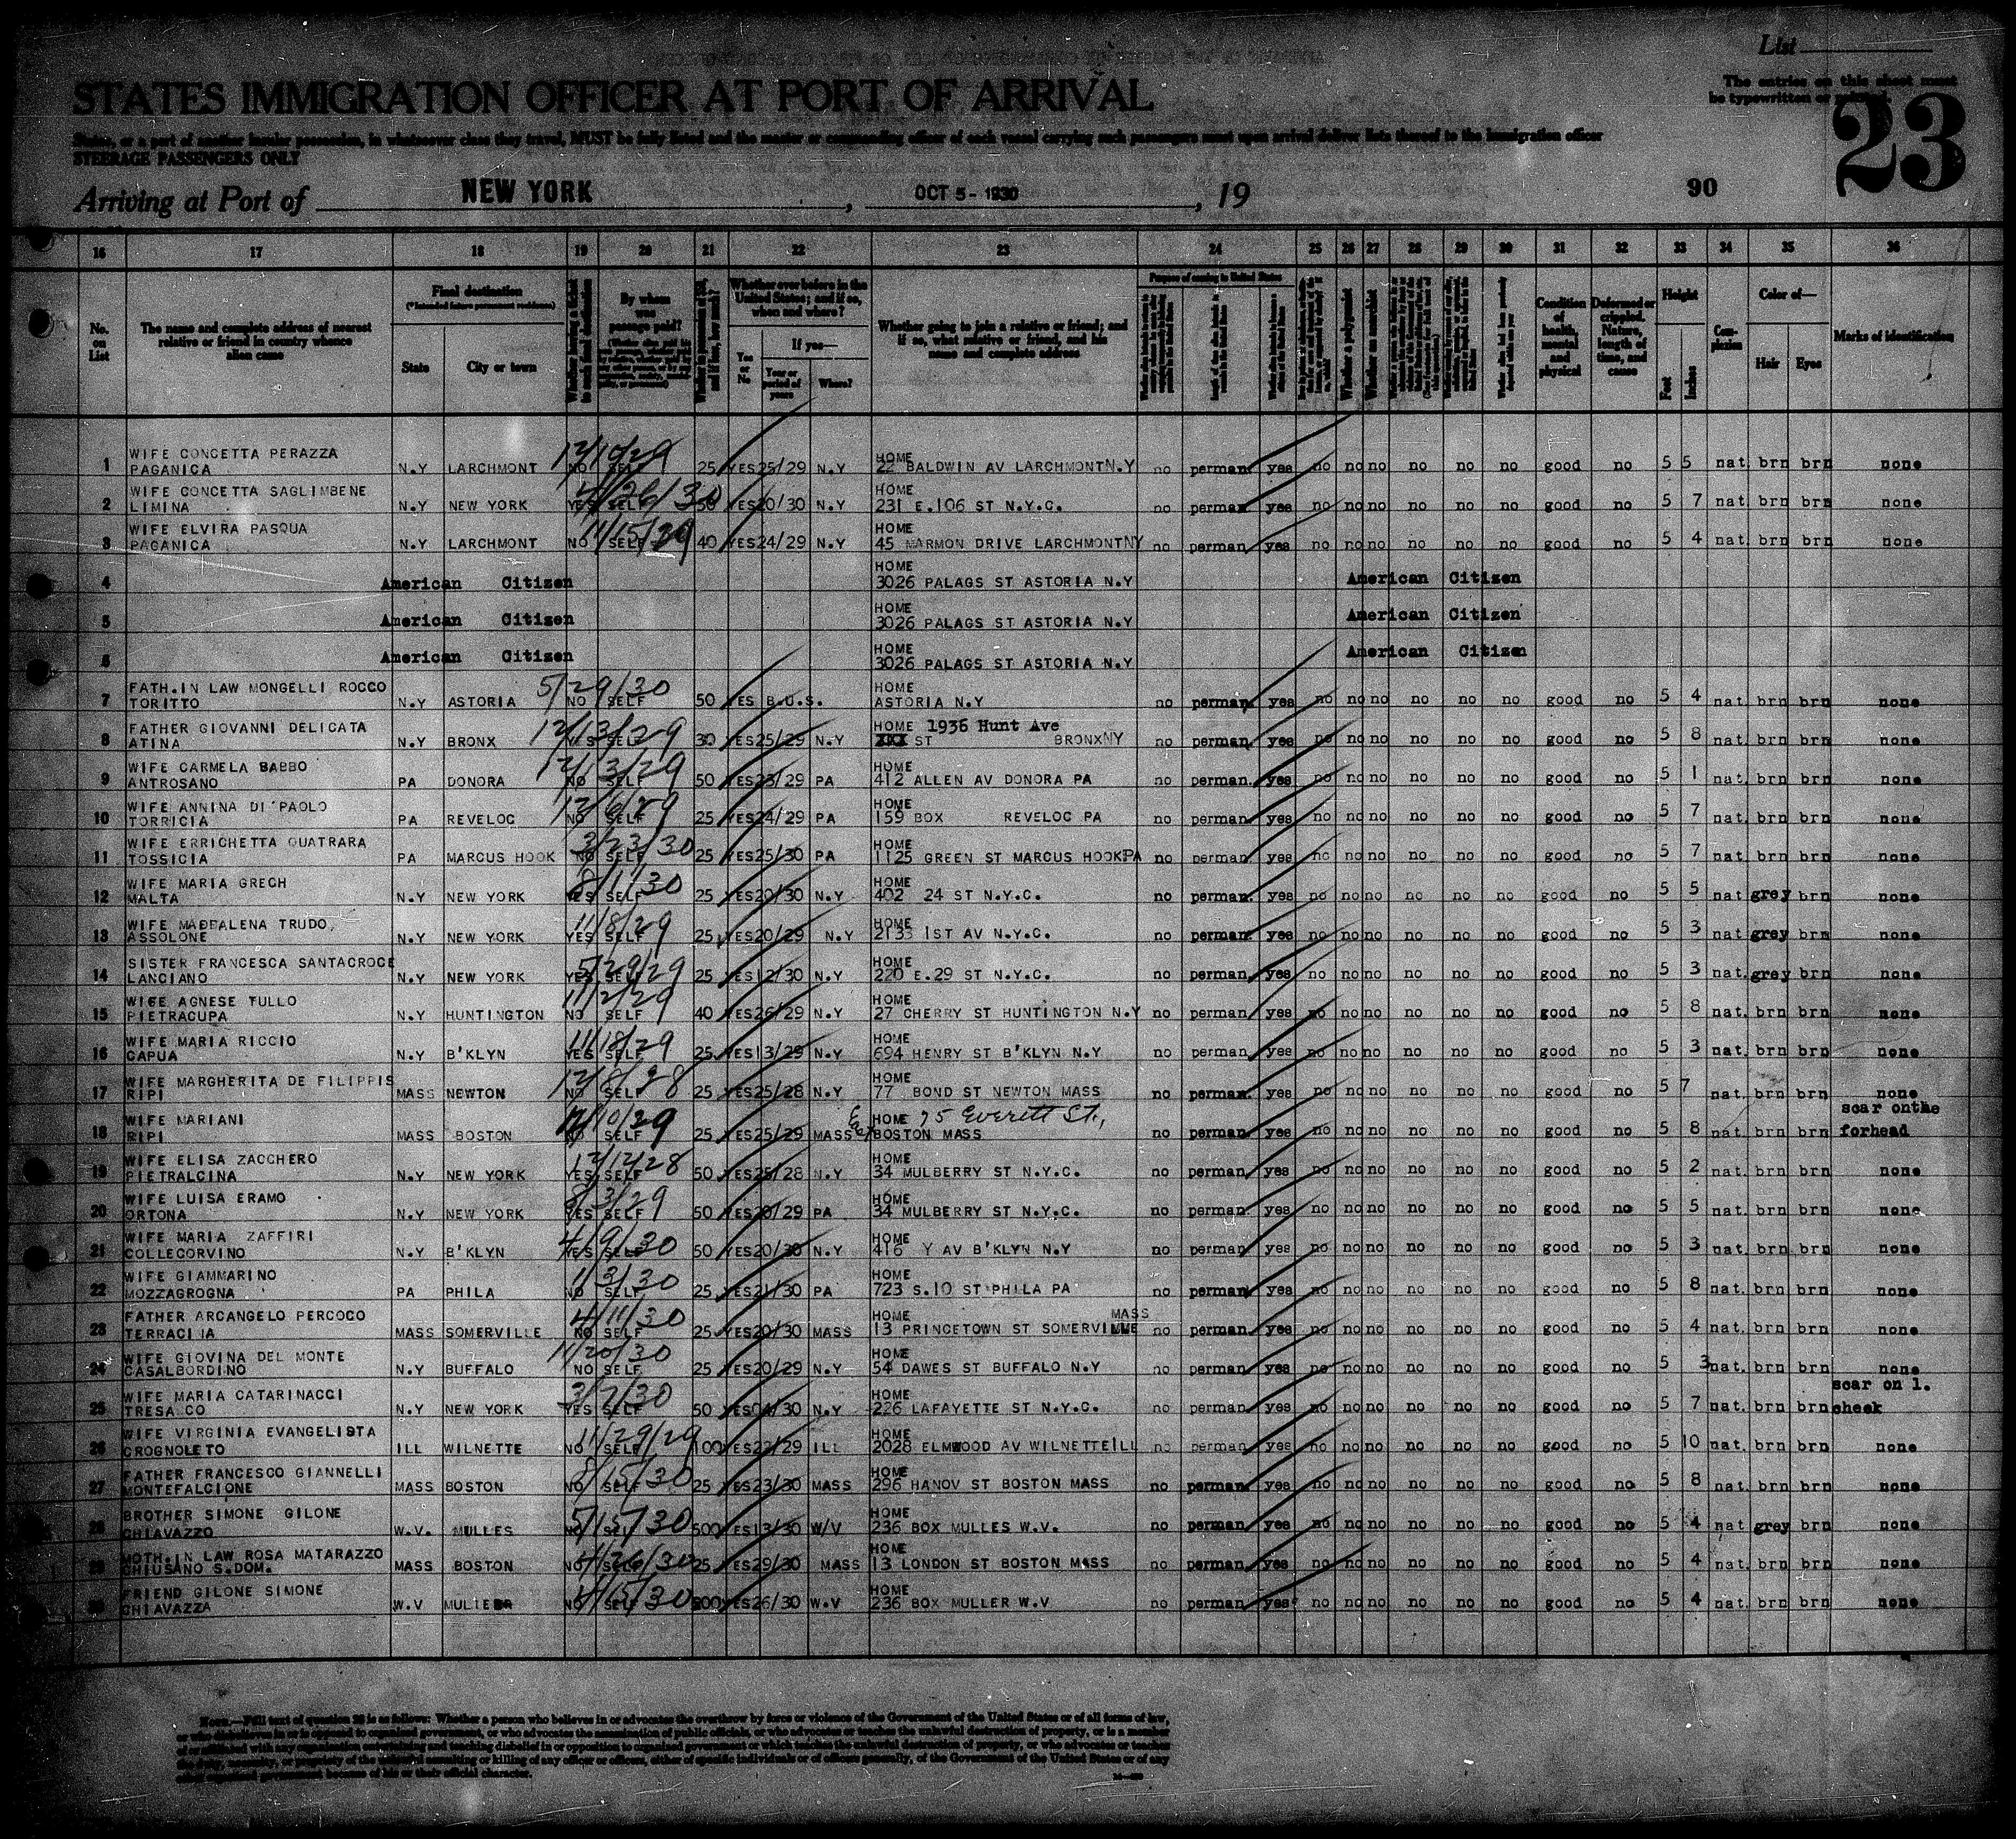 List
STATES IMMIGRATION OFFICER AT PORT OF ARRIVAL
The entries on this sheet must
be typewritten or
23
States, or a part of another insular possession, in whatsoever class they travel, MUST be fully listed and the master or commanding officer of each vessel carrying such passengers must upon arrival deliver lists thereof to the immigration officer
STEERAGE PASSENGERS ONLY
Arriving at Port of NEW YORK, OCT 5 - 1930, 19 90
16 17 18 19 20 21 22 23 24 25 26 27 28 29 30 31 32 33 34 35 36
No. on List
The name and complete address of nearest relative or friend in country whence alien came
Final destination
State City or town
By whom was passage paid?
Whether ever before in the United States; and if so, when and where?
Yes or No
If yes—
Year or period of years
Where?
Whether going to join a relative or friend; and if so, what relative or friend, and his name and complete address
Purpose of coming to United States
Whether a polygamist
Whether an anarchist
Condition of health, mental and physical
Deformed or crippled. Nature, length of time, and cause
Height
Feet Inches
Complexion
Color of—
Hair Eyes
Marks of identification
1 WIFE CONCETTA PERAZZA PAGANICA N.Y LARCHMONT 12/10/29 NO SELF 25 YES 25/29 N.Y HOME 22 BALDWIN AV LARCHMONT N.Y no perman. yes no no no no no no good no 5 5 nat. brn brn none
2 WIFE CONCETTA SAGLIMBENE LIMINA N.Y NEW YORK 4/26/30 YES SELF 50 YES 20/30 N.Y HOME 231 E.106 ST N.Y.C. no perman yes no no no no no no good no 5 7 nat. brn brn none
3 WIFE ELVIRA PASQUA PAGANICA N.Y LARCHMONT 11/15/29 NO SELF 40 YES 24/29 N.Y HOME 45 MARMON DRIVE LARCHMONT NY no perman. yes no no no no no no good no 5 4 nat. brn brn none
4 American Citizen HOME 3026 PALAGS ST ASTORIA N.Y American Citizen
5 American Citizen HOME 3026 PALAGS ST ASTORIA N.Y American Citizen
6 American Citizen HOME 3026 PALAGS ST ASTORIA N.Y American Citizen
7 FATH.IN LAW MONGELLI ROCCO TORITTO N.Y ASTORIA 5/29/30 NO SELF 50 YES B.U.S. HOME ASTORIA N.Y no perman. yes no no no no no no good no 5 4 nat. brn brn none
8 FATHER GIOVANNI DELICATA ATINA N.Y BRONX 12/13/29 YES SELF 30 YES 25/29 N.Y HOME 1936 Hunt Ave XXX ST BRONX NY no perman. yes no no no no no no good no 5 8 nat. brn brn none
9 WIFE CARMELA BABBO ANTROSANO PA DONORA 12/13/29 NO SELF 50 YES 23/29 PA HOME 412 ALLEN AV DONORA PA no perman. yes no no no no no no good no 5 1 nat. brn brn none
10 WIFE ANNINA DI PAOLO TORRICIA PA REVELOC 12/6/29 NO SELF 25 YES 24/29 PA HOME 159 BOX REVELOC PA no perman. yes no no no no no no good no 5 7 nat. brn brn none
11 WIFE ERRICHETTA QUATRARA TOSSICIA PA MARCUS HOOK 3/23/30 NO SELF 25 YES 25/30 PA HOME 1125 GREEN ST MARCUS HOOK PA no perman. yes no no no no no no good no 5 7 nat. brn brn none
12 WIFE MARIA GRECH MALTA N.Y NEW YORK 8/1/30 YES SELF 25 YES 20/30 N.Y HOME 402 24 ST N.Y.C. no perman. yes no no no no no no good no 5 5 nat grey brn none
13 WIFE MADDALENA TRUDO, ASSOLONE N.Y NEW YORK 11/8/29 YES SELF 25 YES 20/29 N.Y HOME 2133 1ST AV N.Y.C. no perman. yes no no no no no no good no 5 3 nat grey brn none
14 SISTER FRANCESCA SANTACROCE LANCIANO N.Y NEW YORK 5/29/29 YES SELF 25 YES 12/30 N.Y HOME 220 E.29 ST N.Y.C. no perman. yes no no no no no no good no 5 3 nat. grey brn none
15 WIFE AGNESE TULLO PIETRACUPA N.Y HUNTINGTON 11/2/29 NO SELF 40 YES 26/29 N.Y HOME 27 CHERRY ST HUNTINGTON N.Y no perman. yes no no no no no no good no 5 8 nat. brn brn none
16 WIFE MARIA RICCIO CAPUA N.Y B'KLYN 11/18/29 YES SELF 25 YES 13/29 N.Y HOME 694 HENRY ST B'KLYN N.Y no perman. yes no no no no no no good no 5 3 nat. brn brn none
17 WIFE MARGHERITA DE FILIPPIS RIPI MASS NEWTON 12/8/28 NO SELF 25 YES 25/28 N.Y HOME 77 BOND ST NEWTON MASS no perman. yes no no no no no no good no 5 7 nat. brn brn none
18 WIFE MARIANI RIPI MASS BOSTON 12/10/29 NO SELF 25 YES 25/29 MASS HOME 75 Everett St., BOSTON MASS no perman. yes no no no no no no good no 5 8 nat. brn brn scar on the forhead
19 WIFE ELISA ZACCHERO PIETRALCINA N.Y NEW YORK 12/12/28 YES SELF 50 YES 25/28 N.Y HOME 34 MULBERRY ST N.Y.C. no perman. yes no no no no no no good no 5 2 nat. brn brn none
20 WIFE LUISA ERAMO ORTONA N.Y NEW YORK 8/3/29 YES SELF 50 YES 20/29 PA HOME 34 MULBERRY ST N.Y.C. no perman. yes no no no no no no good no 5 5 nat. brn brn none
21 WIFE MARIA ZAFFIRI COLLECORVINO N.Y B'KLYN 4/9/30 YES SELF 50 YES 20/30 N.Y HOME 416 Y AV B'KLYN N.Y no perman. yes no no no no no no good no 5 3 nat. brn brn none
22 WIFE GIAMMARINO MOZZAGROGNA PA PHILA 1/3/30 NO SELF 25 YES 21/30 PA HOME 723 S.10 ST PHILA PA no perman. yes no no no no no no good no 5 8 nat. brn brn none
23 FATHER ARCANGELO PERCOCO TERRACI IA MASS SOMERVILLE 4/11/30 NO SELF 25 YES 20/30 MASS HOME 13 PRINCETOWN ST SOMERVILLE MASS no perman. yes no no no no no no good no 5 4 nat. brn brn none
24 WIFE GIOVINA DEL MONTE CASALBORDINO N.Y BUFFALO 11/20/30 NO SELF 25 YES 20/29 N.Y HOME 54 DAWES ST BUFFALO N.Y no perman. yes no no no no no no good no 5 3 nat. brn brn none
25 WIFE MARIA CATARINACCI TRESA CO N.Y NEW YORK 3/7/30 YES SELF 50 YES 04/30 N.Y HOME 226 LAFAYETTE ST N.Y.C. no perman. yes no no no no no no good no 5 7 nat. brn brn scar on l. cheek
26 WIFE VIRGINIA EVANGELISTA CROGNOLETO ILL WILNETTE 11/29/29 NO SELF 100 YES 22/29 ILL HOME 2028 ELMWOOD AV WILNETTE ILL no perman. yes no no no no no no good no 5 10 nat. brn brn none
27 FATHER FRANCESCO GIANNELLI MONTEFALCIONE MASS BOSTON 8/15/30 NO SELF 25 YES 23/30 MASS HOME 296 HANOV ST BOSTON MASS no perman. yes no no no no no no good no 5 8 nat. brn brn none
28 BROTHER SIMONE GILONE CHIAVAZZO W.V. MULLES 5/15/30 NO SELF 500 YES 13/30 W/V HOME 236 BOX MULLES W.V. no perman. yes no no no no no no good no 5 4 nat grey brn none
29 MOTH.IN LAW ROSA MATARAZZO CHIUSANO S.DOM. MASS BOSTON 4/26/30 NO SELF 25 YES 29/30 MASS HOME 13 LONDON ST BOSTON MASS no perman. yes no no no no no no good no 5 4 nat. brn brn none
30 FRIEND GILONE SIMONE CHIAVAZZA W.V 5/15/30 NO SELF YES 26/30 W.V HOME 236 BOX MULLER W.V no perman. yes no no no no no no good no 5 4 nat. brn brn none
NOTE.—Full text of question 28 is as follows: Whether a person who believes in or advocates the overthrow by force or violence of the Government of the United States or of all forms of law,
or who disbelieves in or is opposed to organized government, or who advocates the assassination of public officials, or who advocates or teaches the unlawful destruction of property, or is a member
of or affiliated with any organization entertaining and teaching disbelief in or opposition to organized government or which teaches the unlawful destruction of property, or who advocates or teaches
the duty, necessity, or propriety of the unlawful assaulting or killing of any officer or officers, either of specific individuals or of officers generally, of the Government of the United States or of any
other organized government because of his or their official character.